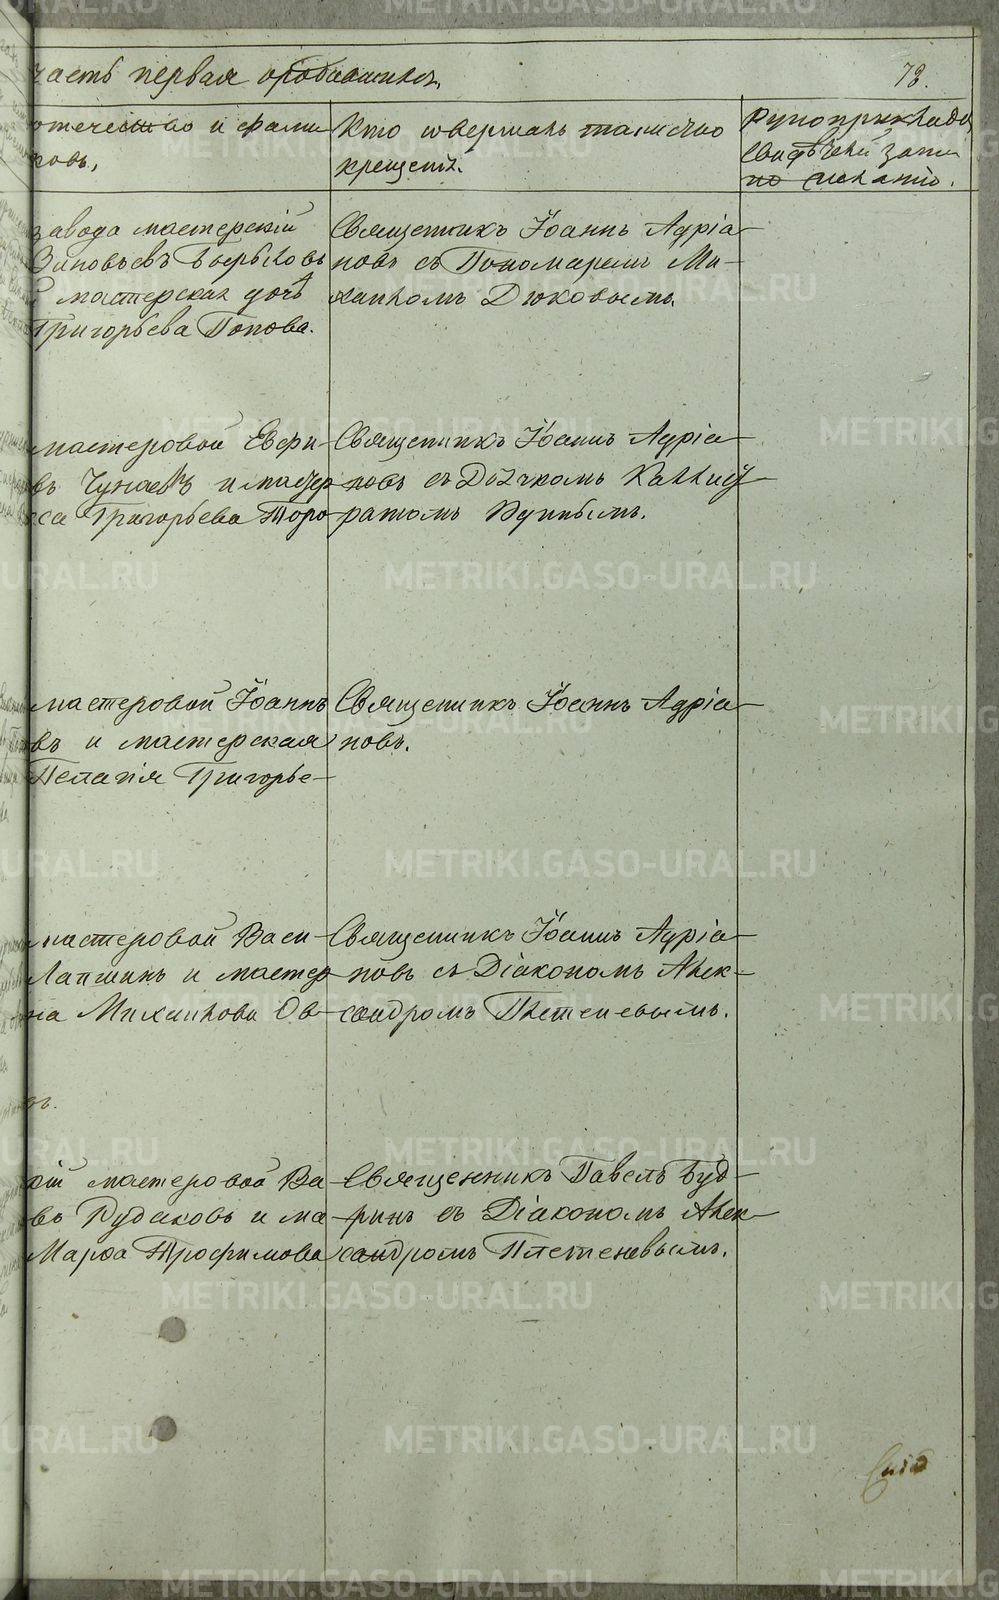 часть первая о родившихся.
78.
отечество и фами
ковъ,
Кто совершалъ таинство
крещенія.
Рукоприклад.
свидѣтелей запи
по желанію.
завода мастерскій
Зиновьевъ
мастерская дочь
Григорьева Попова.
Священникъ Іоаннъ Адріа
новъ съ Пономаремъ Ми-
хаиломъ Дюковымъ.
мастеровой Евфи-
въ Чунаевъ и мастер
са Григорьева Торо
Священникъ Іоаннъ Адріа
новъ съ Дьячкомъ Каллист
ратомъ
мастеровой Іоаннъ
въ и мастерская
Пелагія Григорье-
Священникъ Іоаннъ Адріа
новъ.
мастеровой Васи-
Лапшинъ и мастер
на Михайлова Ов-
Священникъ Іоаннъ Адріа
новъ съ Діакономъ Алек-
сандромъ Плетеневымъ.
въ.
кій мастеровой Ва
въ Рудаковъ и ма
Марѳа Трофимова
Священникъ Павелъ Буд-
ринъ съ Діакономъ Алек
сандромъ Плетеневымъ.
METRIKI.GASO-URAL.RU